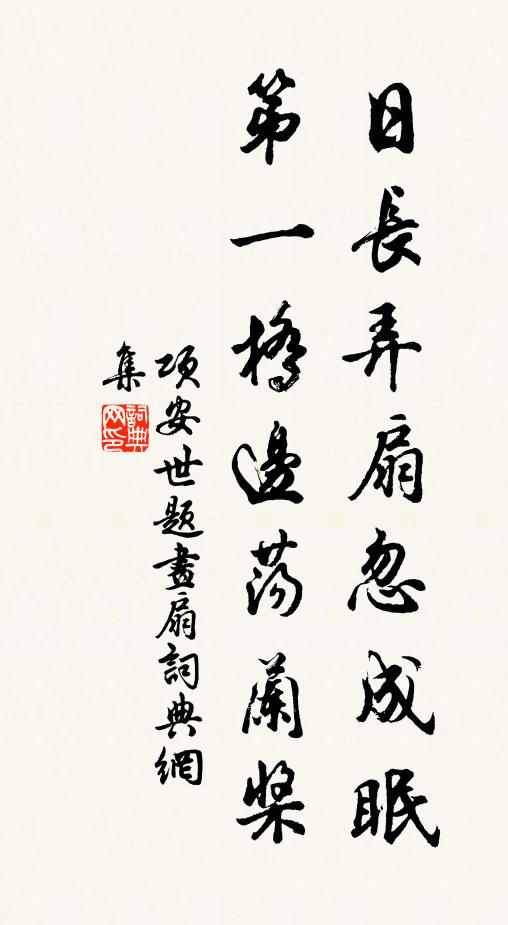 日長弄扇忽成眠
第一橋邊蕩蘭槳
項安世題畫扇詞典網
集
詞典
网印